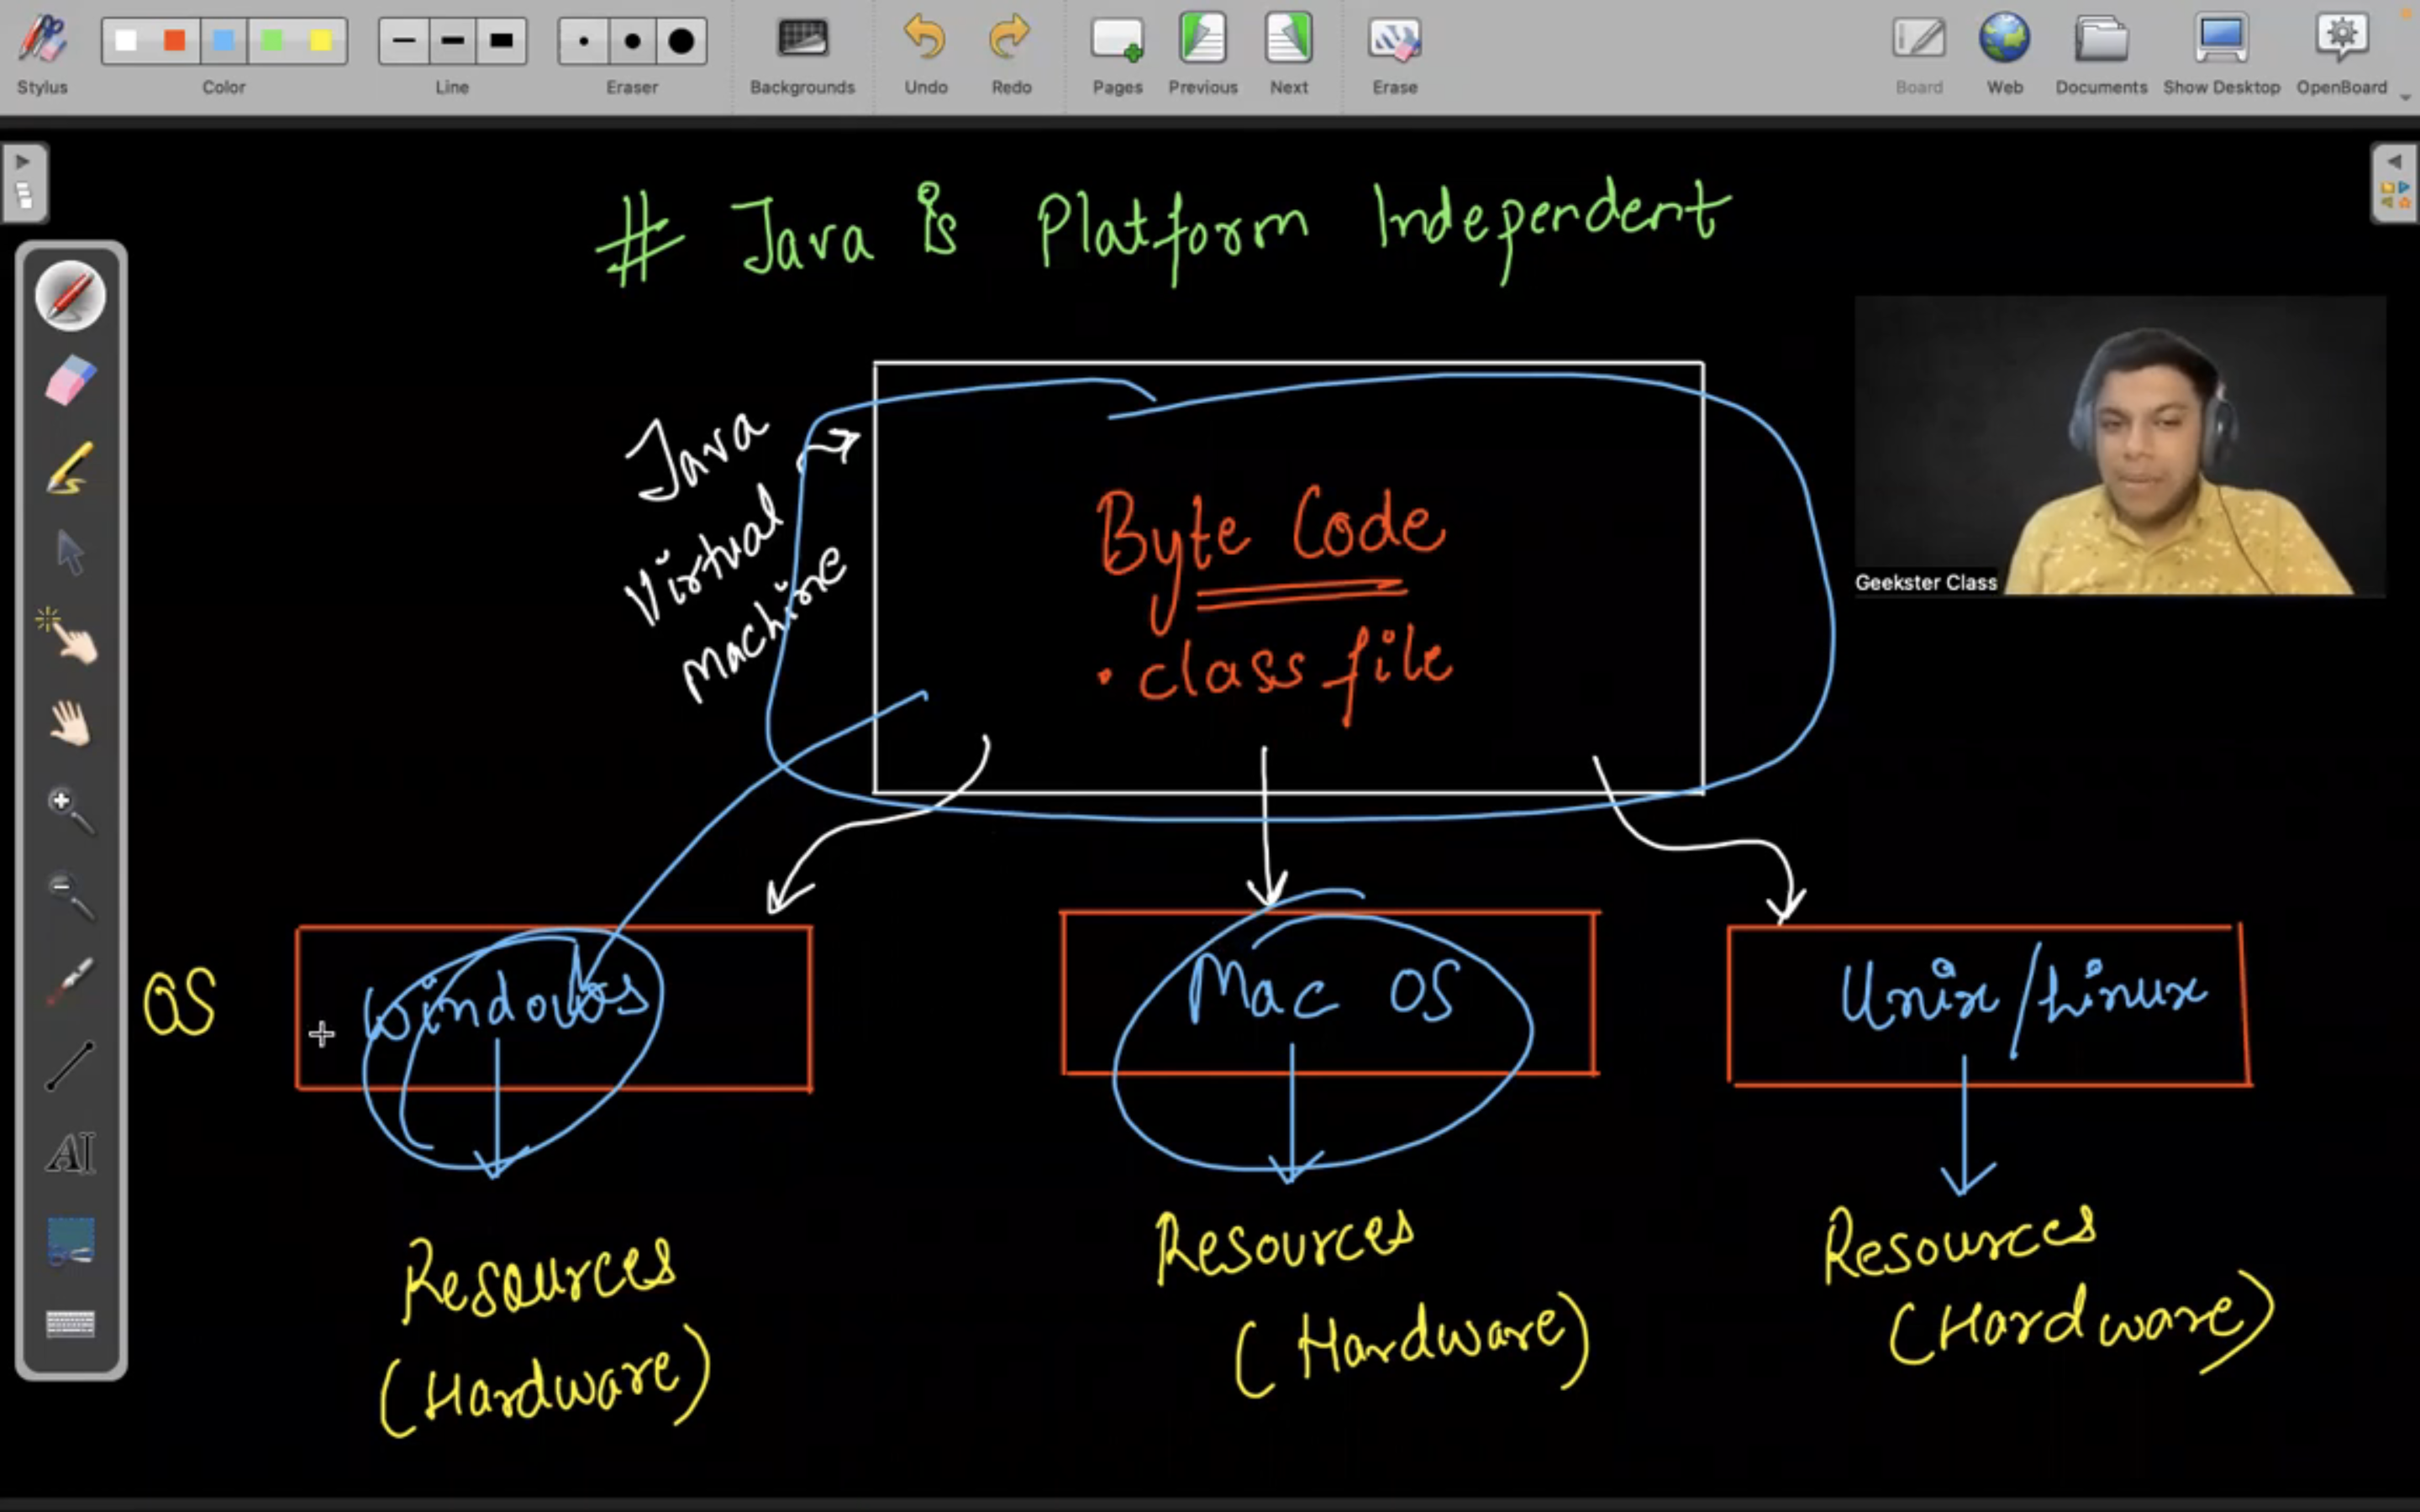 Stylus
Color
Line
Eraser
Backgrounds
Undo
Redo
Pages
Previous
Next
Erase
Board
Web
Documents
Show Desktop
OpenBoard
# Java is Platform Independent
Java
Virtual
Machine
Byte Code
.class file
Geekster Class
OS
Windows
Mac OS
Unix/Linux
Resources
(Hardware)
Resources
(Hardware)
Resources
(Hardware)
AI